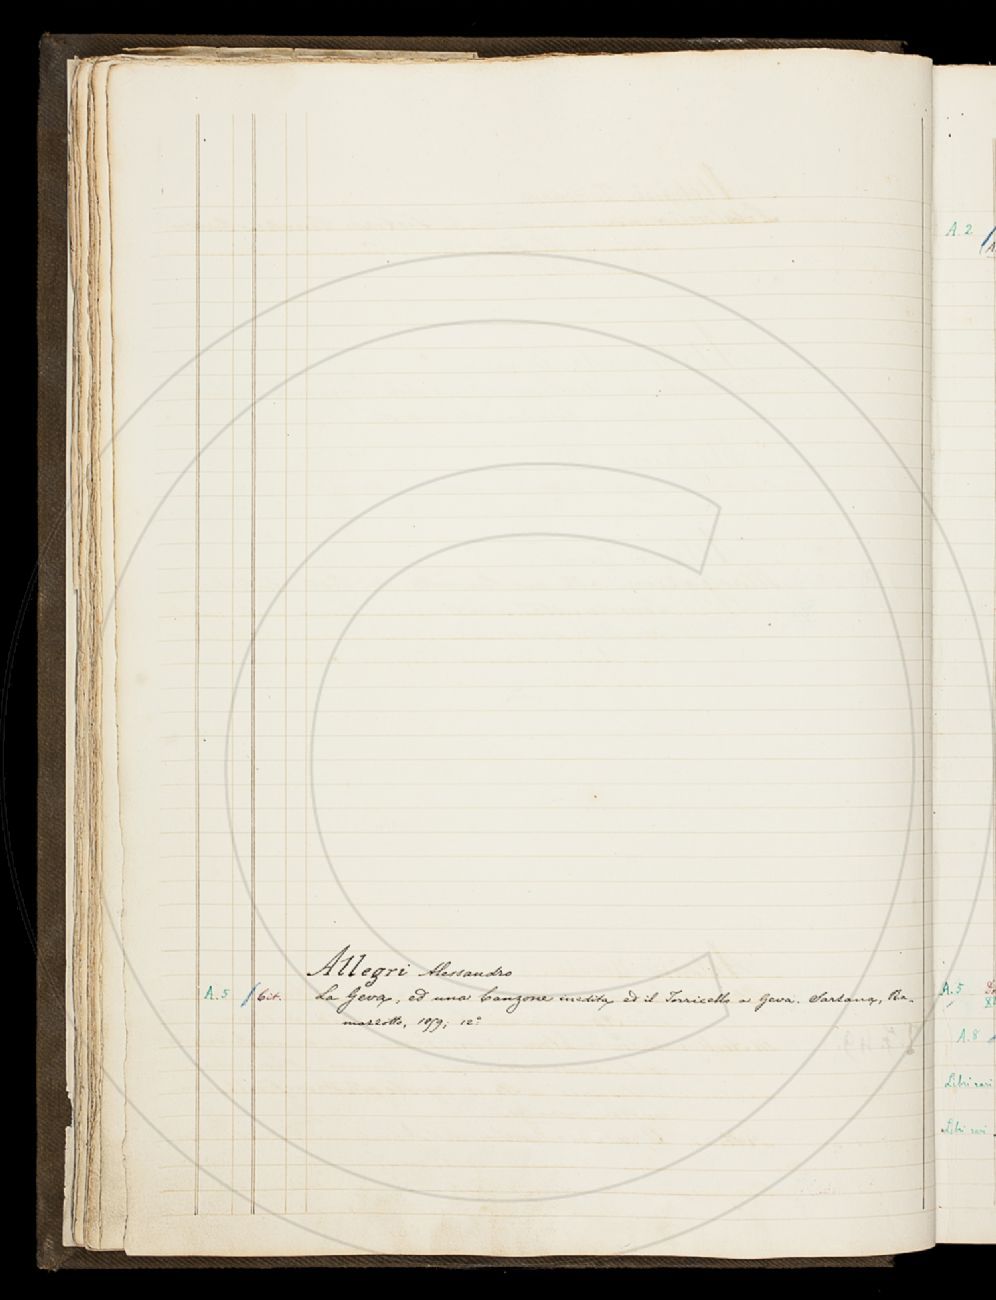 Allegri Alessandro
A.5 La Geva, ed una Canzone inedita, ed il Torricello a Geva. Sarzana, Ra-
mazzotto,
12°
A.2
A.5
A.8
Libri rari
Libri rari